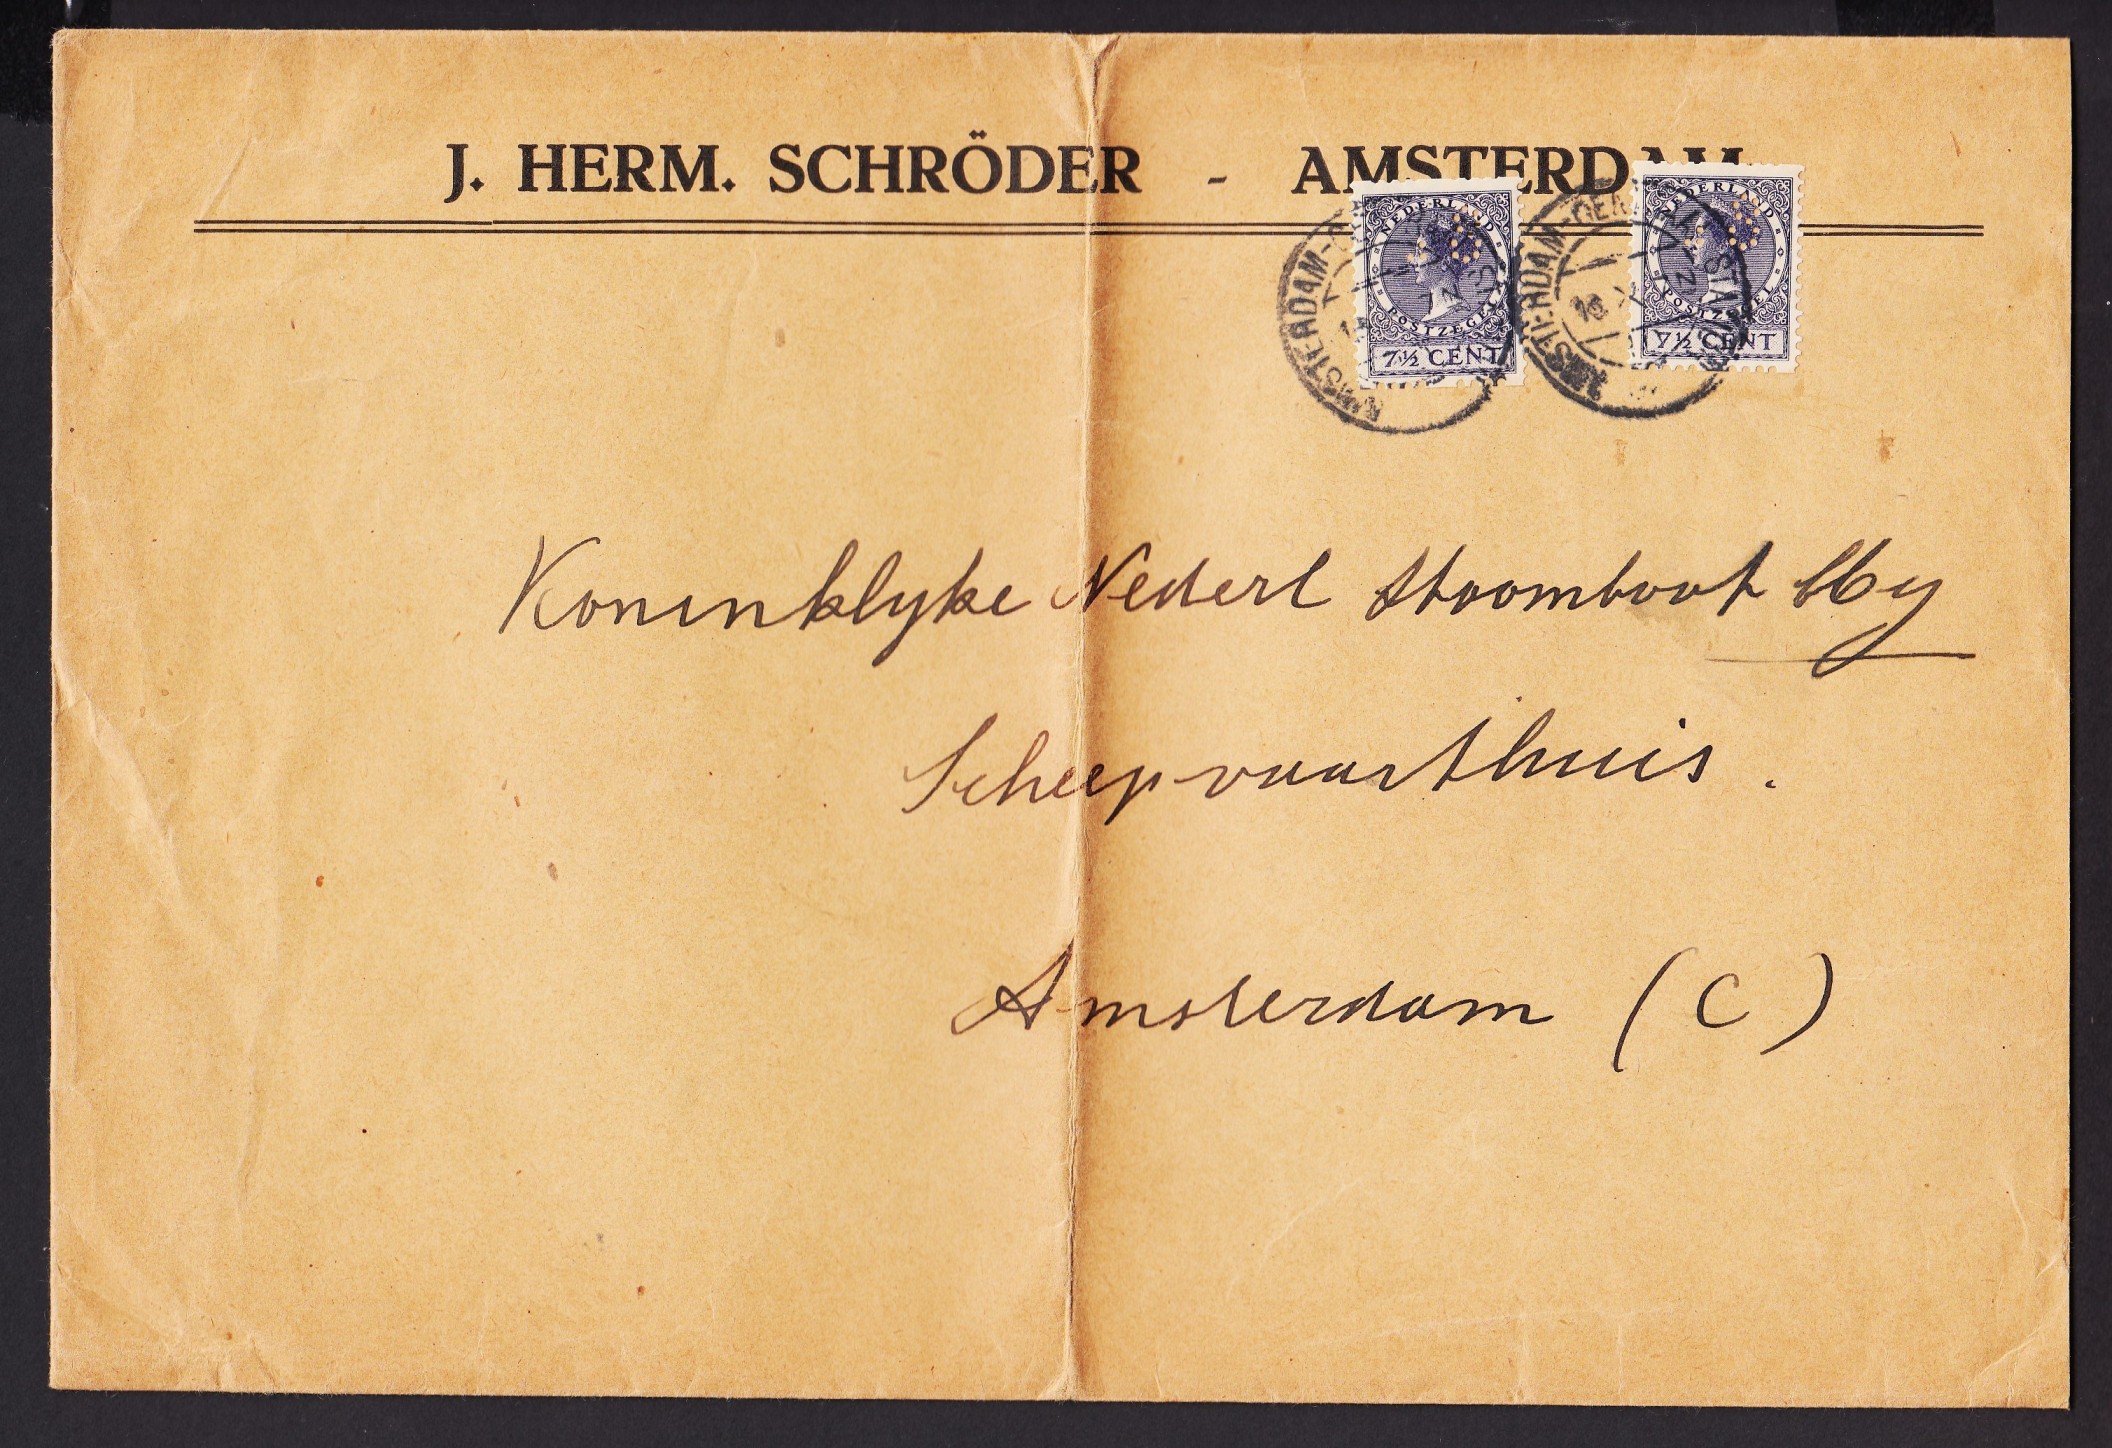 J. HERM. SCHRÖDER - AMSTERDAM
NEDERLAND
POSTZEGEL
7½ CENT
NEDERLAND
POSTZEGEL
7½ CENT
AMSTERDAM
AMSTERDAM
Koninklyke Nederl Stoomboot My
Scheepvaarthuis.
Amsterdam (C)